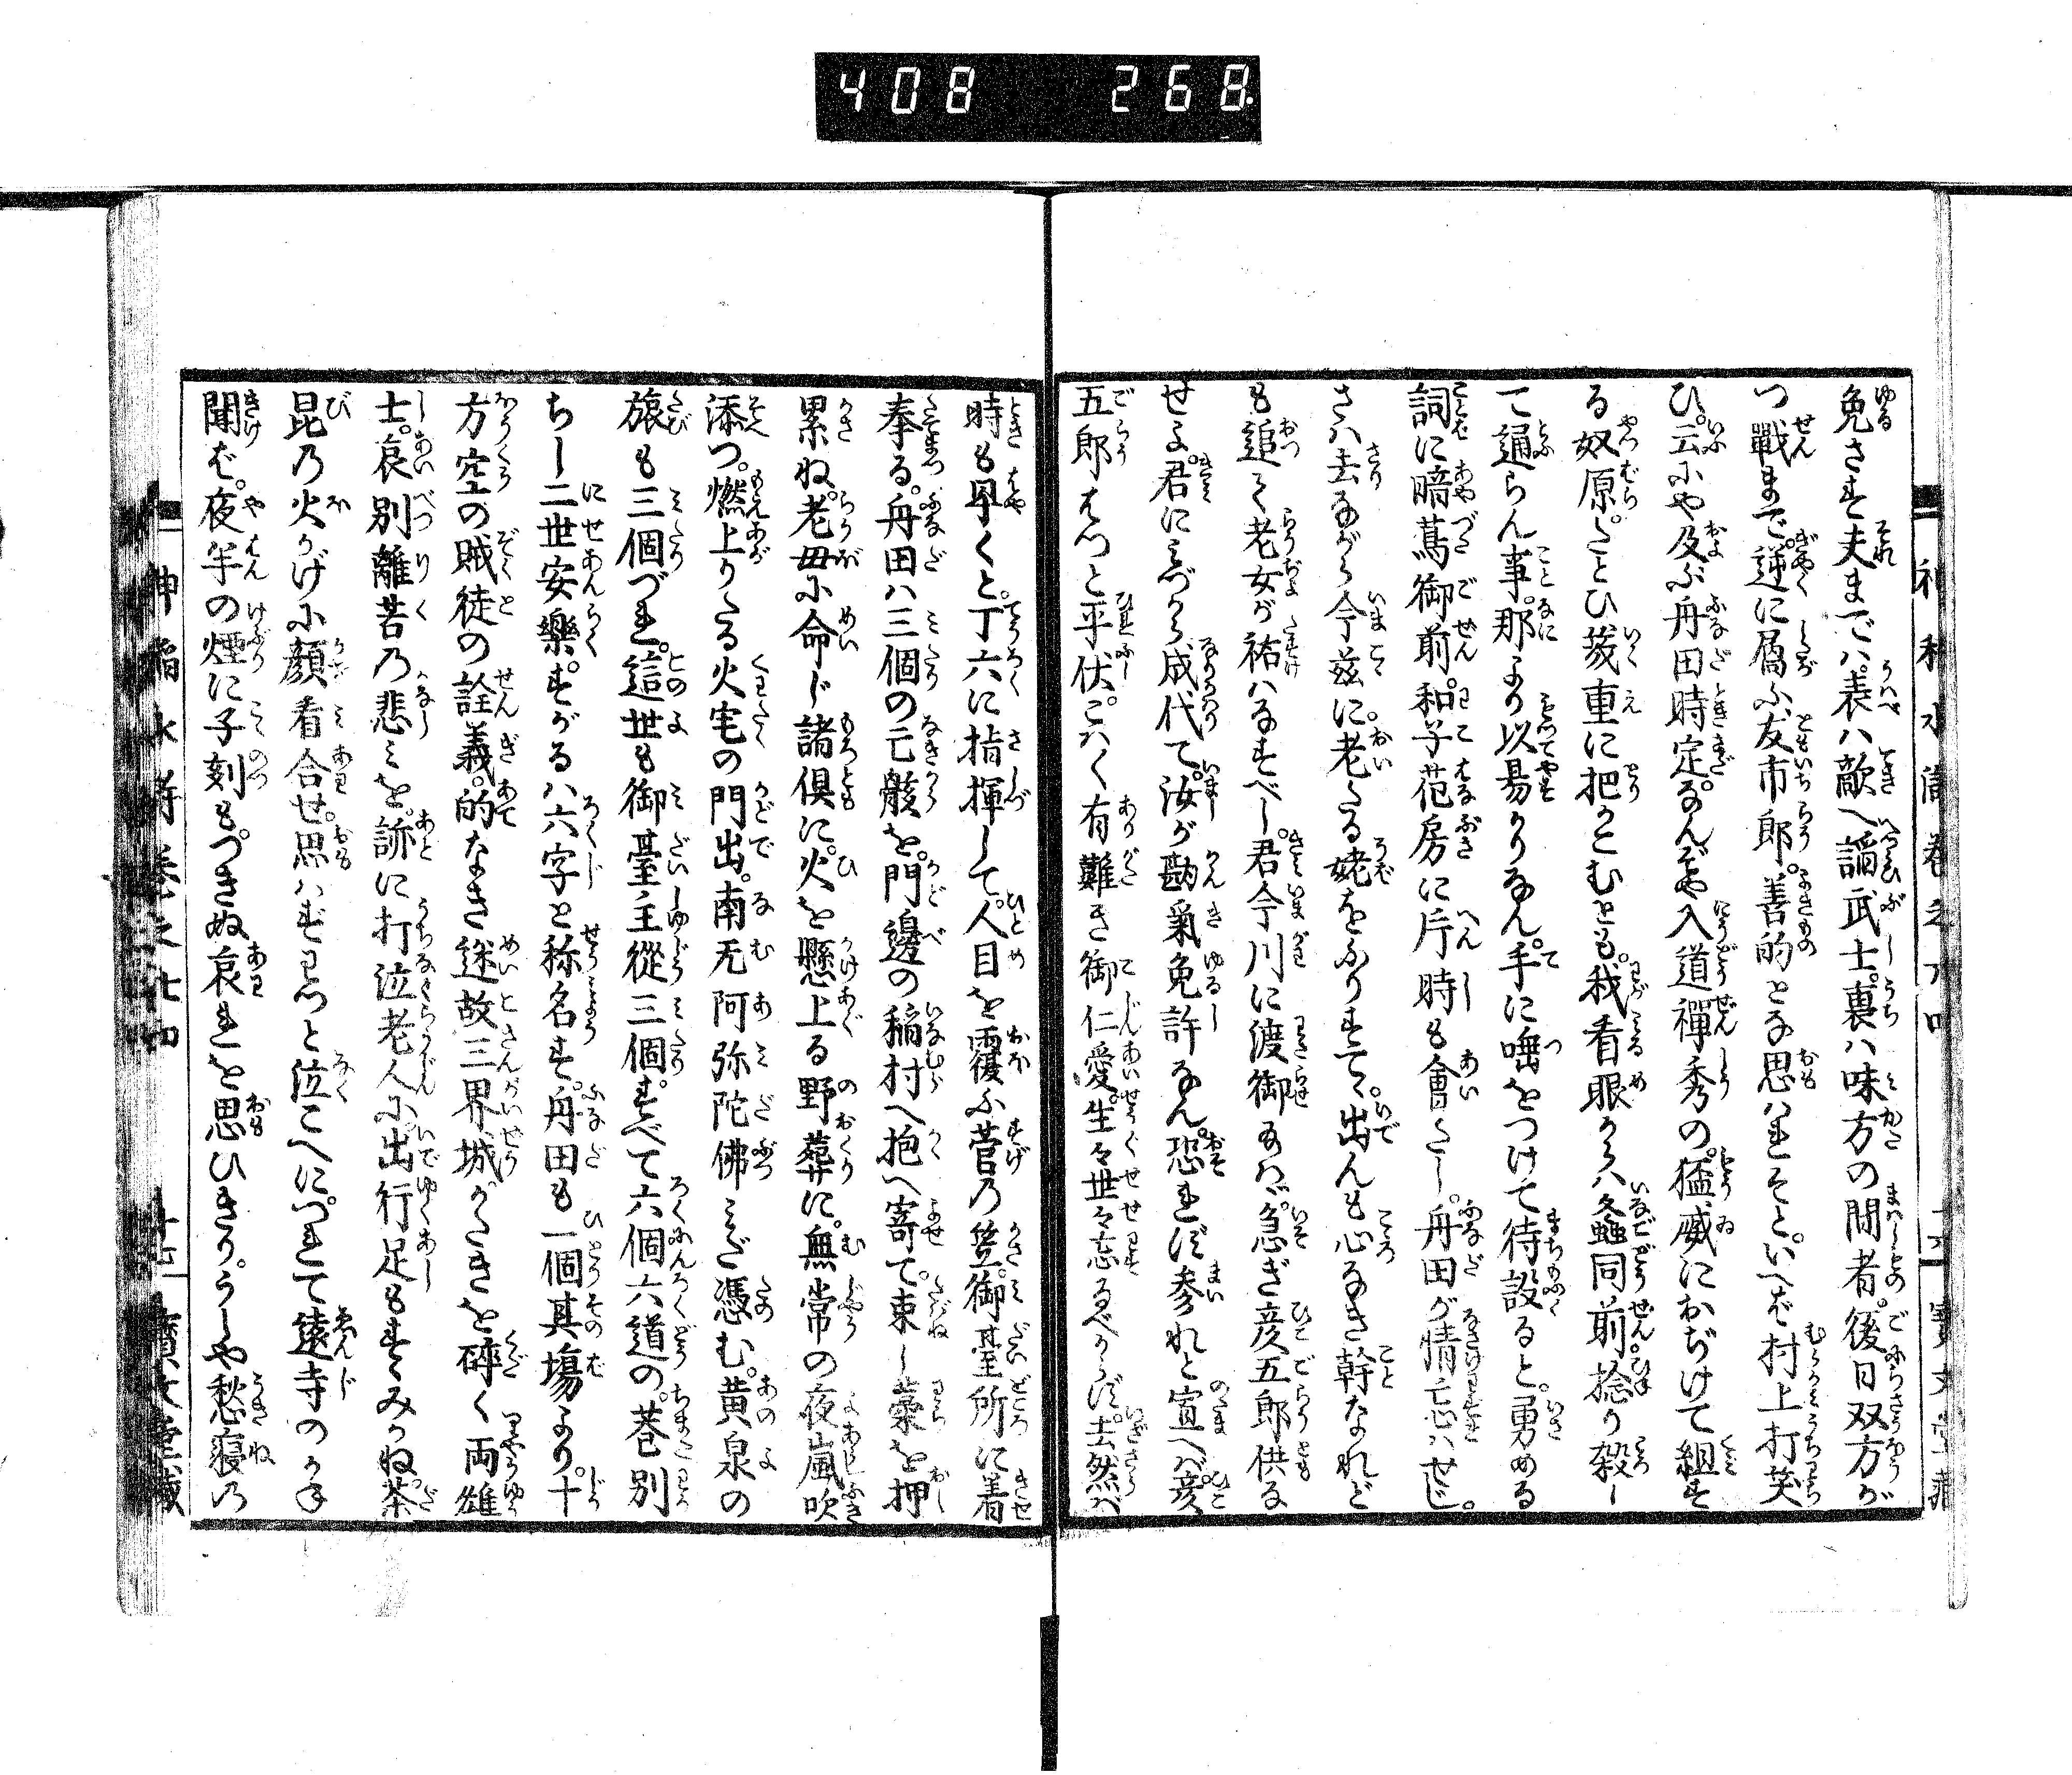 408 268
免さず夫までハ表ハ敵へ謟武士。裏ハ味方の間者。後日双方が
つ戰まで。逆に属ふ友市郎。善的とな思ハれそと。いへば村上打笑
ひ。云ふや及ぶ舟田時定。なんぞや入道禪秀の。猛威におぢけて組す
る奴原。たとひ幾重に把かこむとも。我看眼からハ螽同前。捻り殺し
て通らん事。那より以易かりなん。手に唾をつけて待設ると。勇める
詞に暗蔦御前。和子花房に片時も會たし。舟田が情忘ハせじ。
さハ去ながら今茲に。老たる姥をふりすて。出んも心なき幹なれど
も追て老女が祐ハなすべし。君今川に渡御あハゞ。急ぎ彦五郎供な
せよ。君にミづから成代て。汝が勘氣免許なん。恐れず参れと宣へバ。彦
五郎はつと平伏。こハ〳〵有難き御仁愛。生々世々忘るべからず。去然バ
時も早くと。丁六に指揮して。人目を覆ふ菅の笠。御臺所に着
奉る。舟田ハ三個の亡骸を。門邊の稲村へ抱へ寄て。束し藁を押
累ね。老母に命じ諸倶に。火を懸上る野葬に。無常の夜嵐吹
添つ。燃上りたる火宅の門出。南无阿弥陀佛ミだ憑む。黄泉の
旅も三個づれ。這世も御臺主從三個。すべて六個六道の。巷別
ちし二世安樂。すがるハ六字と称名す。舟田も一個其塲より。十
方空の賊徒の詮義。的なき迷故三界城がたきを砕く両雄
士。哀別離苦の悲ミを。跡に打泣老人に。出行足もすゝみかね。茶
昆の火かげに顔看合せ。思ハずわつと泣こへに。つれて遠寺のかね
聞ば。夜半の煙に子刻も。つきぬ哀れを思ひきり。うしや愁寝の